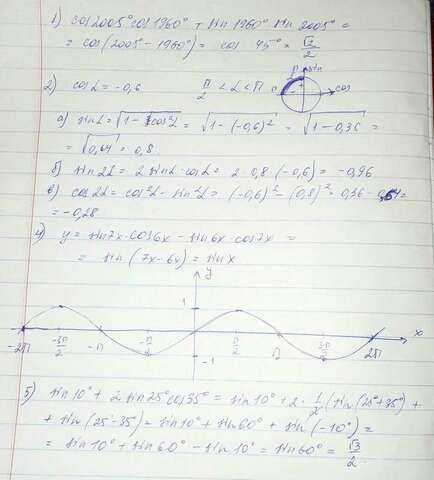 1) cos2005°cos1960° + sin1960° sin 2005° =
= cos(2005° - 1960°) = cos 45° = √2/2
2) cosα = -0,6   π/2 < α < π   sin cos
а) sinα = √(1 - cos²α) = √(1 - (-0,6)²) = √(1 - 0,36) =
= √0,64 = 0,8.
б) sin2α = 2 sinα · cosα = 2 · 0,8 · (-0,6) = -0,96
в) cos2α = cos²α - sin²α = (-0,6)² - (0,8)² = 0,36 - 0,64 =
= -0,28
4) y = sin7x · cos6x - sin6x · cos7x =
= sin (7x - 6x) = sinx
y
1
-2π -3π/2 -π -π/2 π/2 π 3π/2 2π x
-1
5) sin10° + 2 sin25° cos35° = sin10° + 2 · 1/2 (sin(25°+35°) +
+ sin(25°-35°) = sin10° + sin60° + sin(-10°) =
= sin10° + sin60° - sin10° = sin60° = √3/2